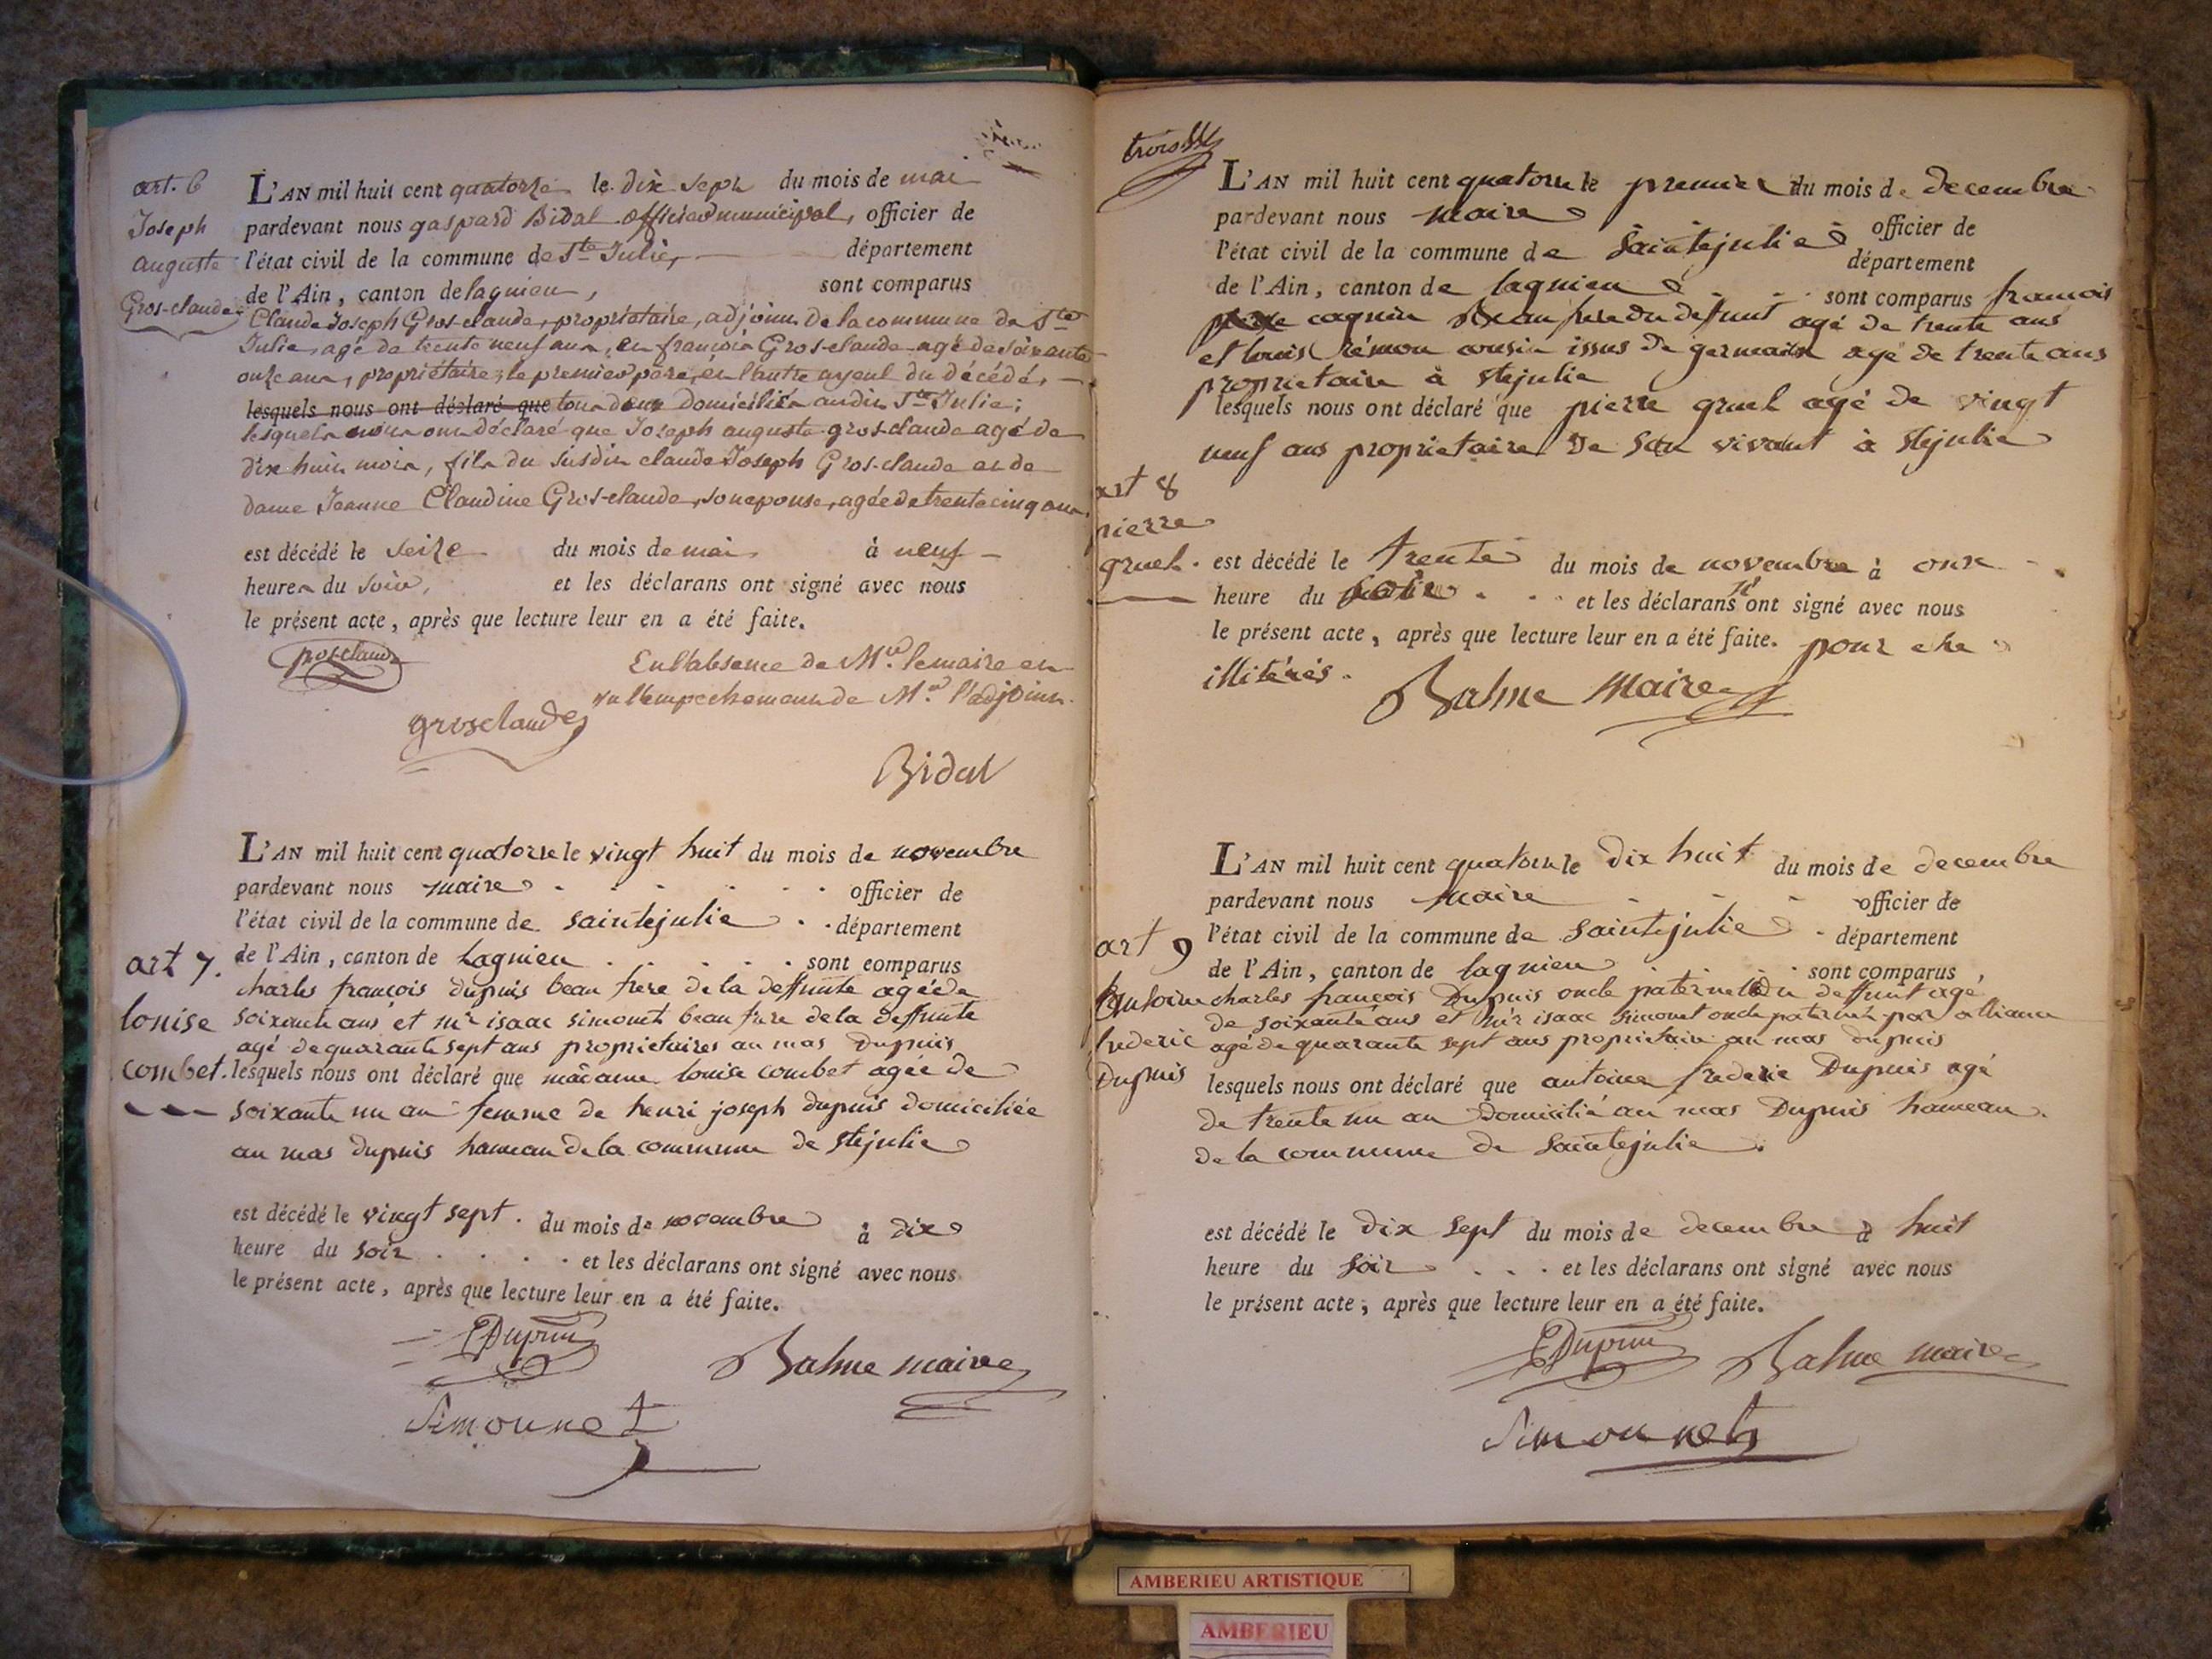 art. 6
Joseph
auguste
Gros-claude
L'AN mil huit cent quatorze le dix sept du mois de mai
pardevant nous gaspard Bidal officier municipal, officier de
l'état civil de la commune de Ste Julie, département
de l'Ain, canton de lagnieu, sont comparus
Claude Joseph Gros-claude, propriétaire, adjoint de la commune de Ste
Julie, agé de trente neuf ans, et françois Gros-claude agé de soixante
onze ans, propriétaire, le premier père, et l'autre ayeul du décédé,
lesquels nous ont déclaré que tous deux domiciliés audit Ste Julie;
lesquels nous ont déclaré que Joseph auguste gros-claude agé de
dix huit mois, fils du susdit claude Joseph Gros-claude et de
dame Jeanne Claudine Gros-claude, son epouse, agée de trente cinq ans,
est décédé le seize du mois de mai à neuf
heures du soir, et les déclarans ont signé avec nous
le présent acte, après que lecture leur en a été faite.
groselaude
En l'absence de Mr. le maire et
vu l'empechement de Mr. l'adjoint.
grosclaude
Bidal
L'AN mil huit cent quatorze le vingt huit du mois de novembre
pardevant nous maire officier de
l'état civil de la commune de saintejulie département
de l'Ain, canton de Lagnieu sont comparus
art 7.
louise
combet.
charles françois dupuis beau frere de la deffunte agé de
soixante ans et mr isaac simonet beau frere de la deffunte
agé de quarante sept ans proprietaires au mas Dupuis
lesquels nous ont déclaré que madame louise combet agée de
soixante un an femme de henri joseph dupuis domiciliée
au mas dupuis hameau de la commune de stejulie
est décédé le vingt sept. du mois de novembre à dix
heure du soir et les déclarans ont signé avec nous
le présent acte, après que lecture leur en a été faite.
Dupuis
Balme maire
Simonnet
trois
L'AN mil huit cent quatorze le premier du mois de decembre
pardevant nous maire officier de
l'état civil de la commune de Saintejulie département
de l'Ain, canton de lagnieu sont comparus francois
cagnin Beau frere du defunt agé de trente ans
et louis rémon cousin issus de germain agé de trente ans
proprietaire à stejulie
lesquels nous ont déclaré que pierre gruel agé de vingt
neuf ans proprietaire de son vivant à stejulie
art 8
pierre
gruel.
est décédé le trente du mois de novembre à onze
heure du soir et les déclarans n'ont signé avec nous
le présent acte, après que lecture leur en a été faite. pour etre
illitérés.
Balme Maire
L'AN mil huit cent quatorze le dix huit du mois de decembre
pardevant nous maire officier de
l'état civil de la commune de Saintejulie département
de l'Ain, canton de lagnieu sont comparus
art 9
antoine
frederic
Dupuis
charles françois Dupuis oncle paternel du deffunt agé
de soixante ans et mr isaac simonet oncle paternel par alliance
agé de quarante sept ans proprietaire au mas dupuis
lesquels nous ont déclaré que antoine frederic Dupuis agé
de trente un an domicilié au mas Dupuis hameau
de la commune de Saintejulie.
est décédé le dix sept du mois de decembre à huit
heure du soir et les déclarans ont signé avec nous
le présent acte, après que lecture leur en a été faite.
Dupuis
Balme maire
Simonnet
AMBERIEU ARTISTIQUE
AMBERIEU